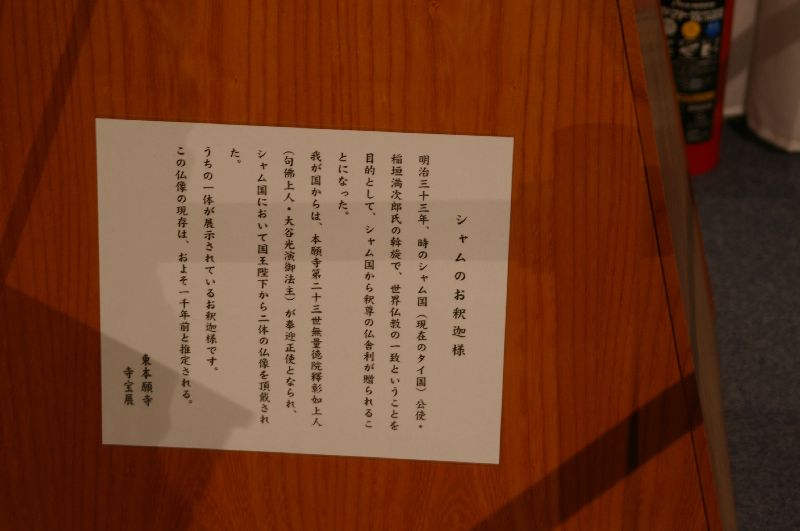 シャムのお釈迦様
明治三十三年、時のシャム国（現在のタイ国）公使・
稲垣満次郎氏の斡旋で、世界仏教の一致ということを
目的として、シャム国から釈尊の仏舎利が贈られるこ
とになった。
我が国からは、本願寺第二十三世無量徳院釋彰如上人
（句佛上人・大谷光演御法主）が奉迎正使となられ、
シャム国において国王陛下から二体の仏像を頂戴され
た。
うちの一体が展示されているお釈迦様です。
この仏像の現存は、およそ一千年前と推定される。
東本願寺
寺宝展